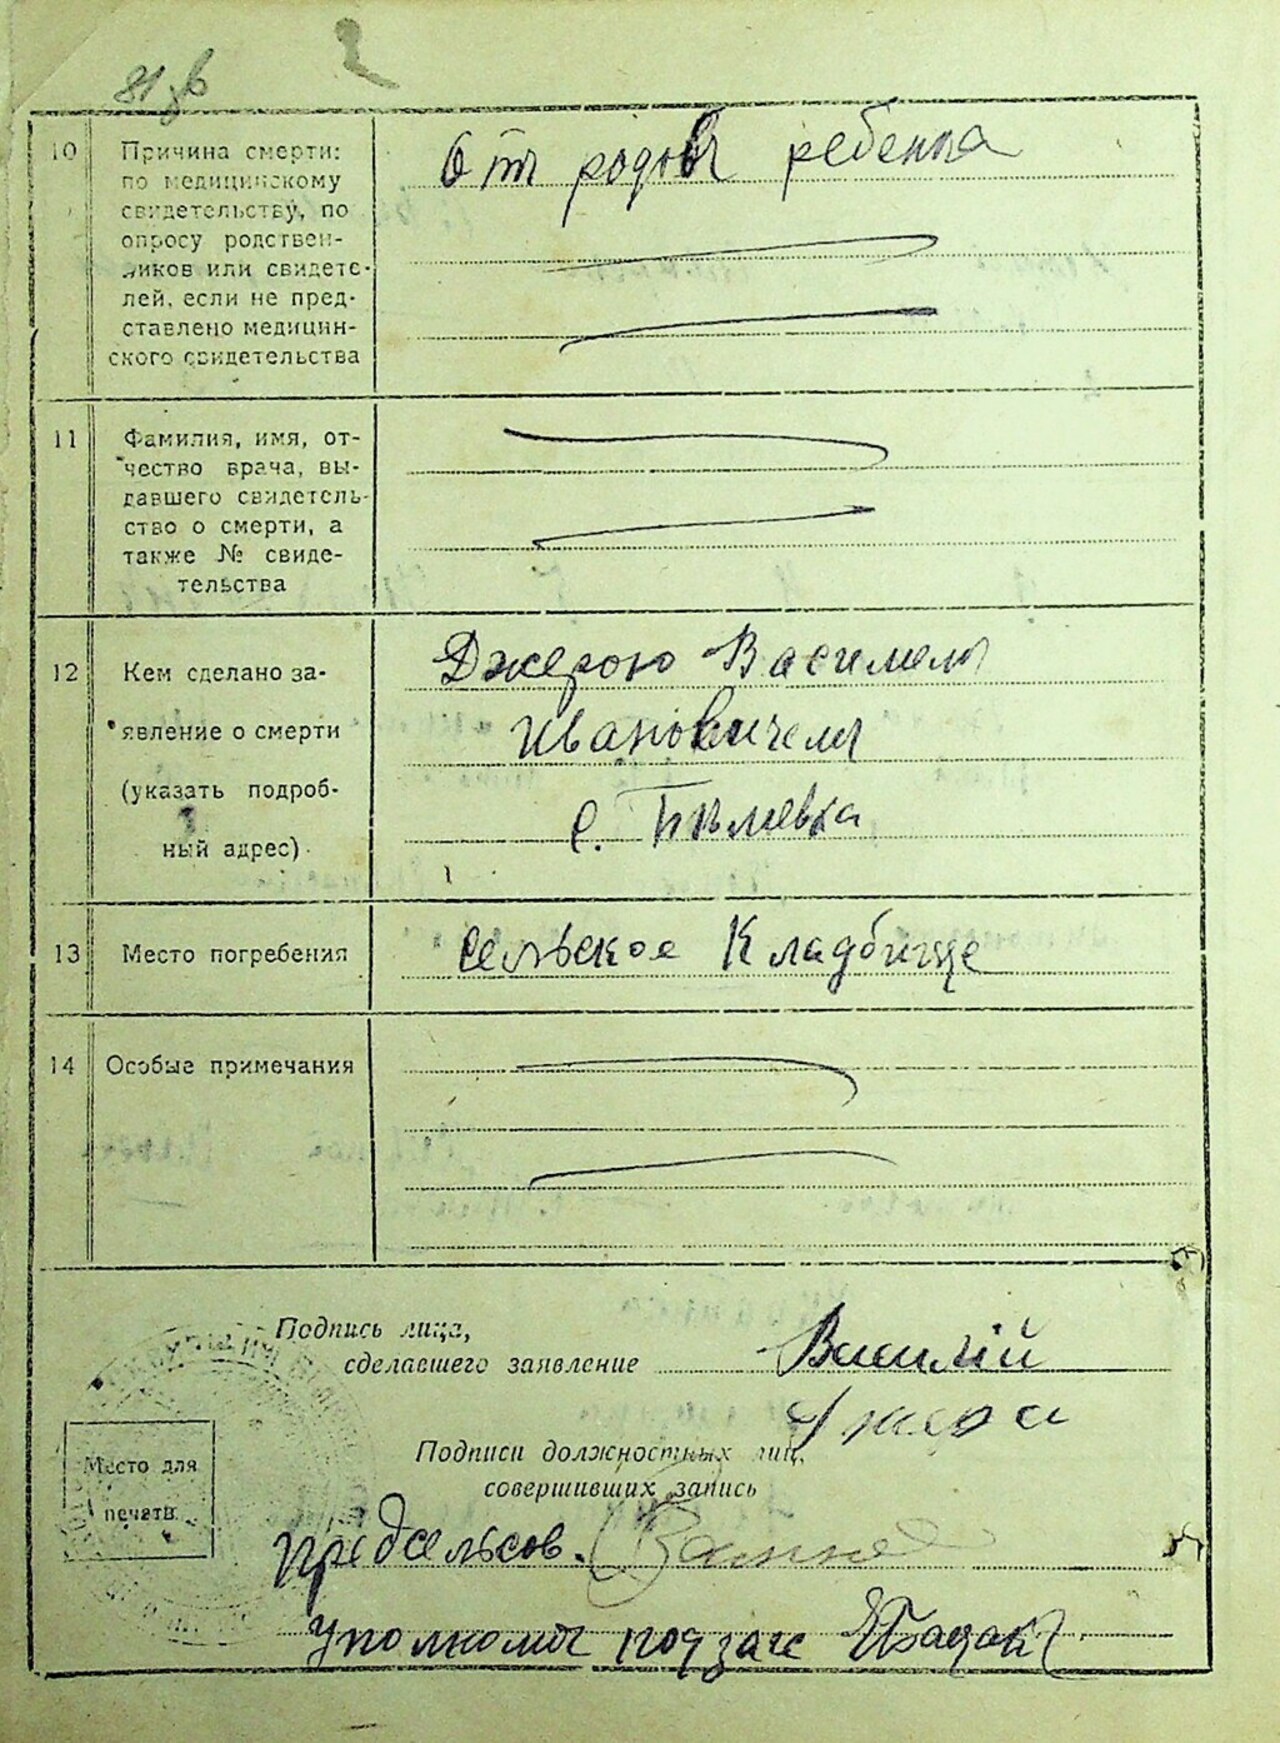 81 зв
2
10 Причина смерти:
по медицинскому
свидетельству, по
опросу родствен-
ников или свидете-
лей, если не пред-
ставлено медицин-
ского свидетельства
От родов ребенка
11 Фамилия, имя, от-
чество врача, вы-
давшего свидетель-
ство о смерти, а
также № свиде-
тельства
12 Кем сделано за-
явление о смерти
(указать подроб-
ный адрес)
Джерою Василем
Ивановичем
с.
13 Место погребения
сельское Кладбище
14 Особые примечания
Подпись лица,
сделавшего заявление
Василій
Джера
Подписи должностных лиц,
совершивших запись
Место для
печати
Предсельсов.
Уполномоч по